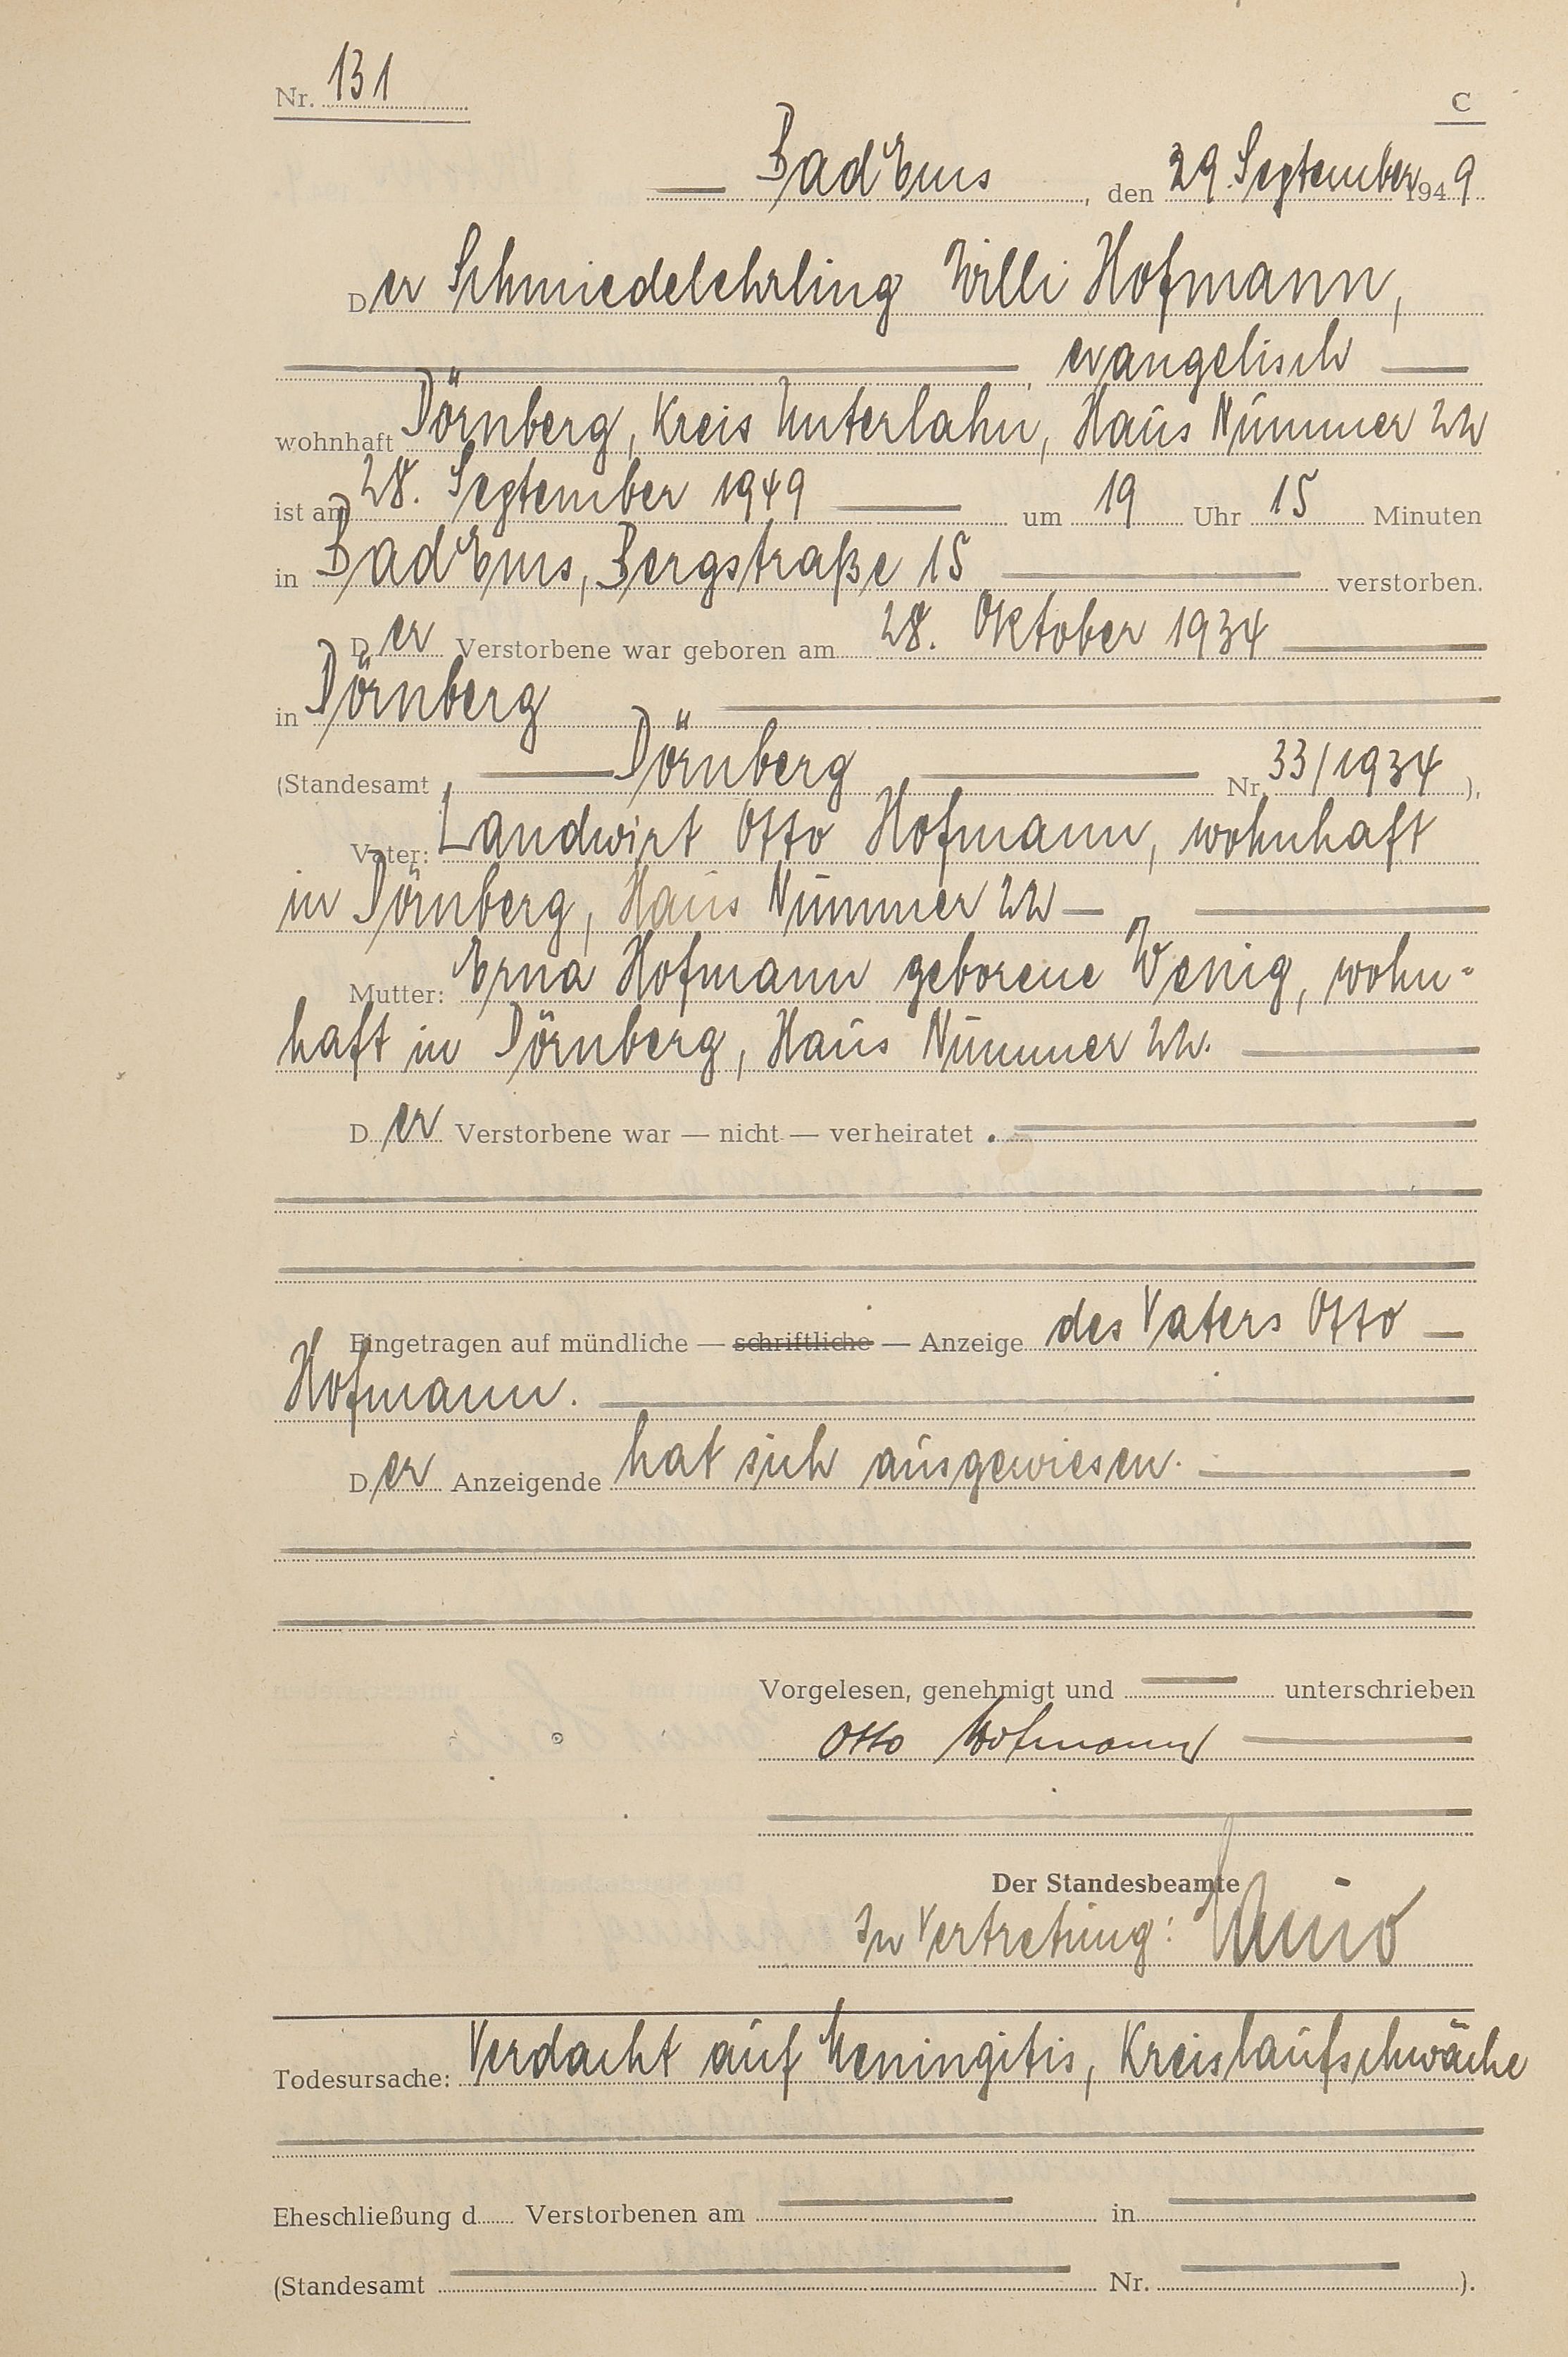 Nr. 131
C
Bad Ems, den 29. September 1949
Der Schmiedelehrling Willi Hofmann,
, evangelisch
wohnhaft Dörnberg, Kreis Unterlahn, Haus Nummer 22
ist am 28. September 1949 um 19 Uhr 15 Minuten
in Bad Ems, Bergstraße 15 verstorben.
Der Verstorbene war geboren am 28. Oktober 1934
in Dörnberg
(Standesamt Dörnberg Nr. 33/1934),
Vater: Landwirt Otto Hofmann, wohnhaft
in Dörnberg, Haus Nummer 22
Mutter: Erna Hofmann geborene Wenig, wohn-
haft in Dörnberg, Haus Nummer 22.
Der Verstorbene war — nicht — verheiratet.
Eingetragen auf mündliche — schriftliche — Anzeige des Vaters Otto
Hofmann.
Der Anzeigende hat sich ausgewiesen.
Vorgelesen, genehmigt und unterschrieben
Otto Hofmann
Der Standesbeamte
In Vertretung:
Todesursache: Verdacht auf Meningitis, Kreislaufschwäche
Eheschließung d Verstorbenen am in
(Standesamt Nr. ).